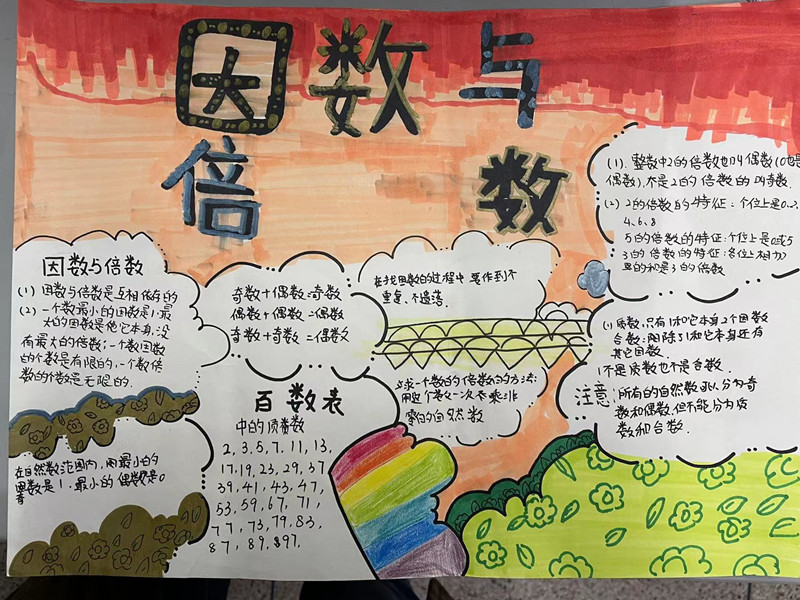 因数与
倍数
因数与倍数
(1) 因数与倍数是互相依存的
(2) 一个数最小的因数是1.最
大的因数是他它本身.没
有最大的倍数;一个数因数
的个数是有限的.一个数倍
数的个数是无限的.
奇数+偶数=奇数
偶数+偶数=偶数
奇数+奇数=偶数
在找因数的过程中 要作到不
重复.不遗漏.
(1). 整数中2的倍数也叫偶数(0也是
偶数).不是2的倍数的叫奇数.
(2) 2的倍数的特征:个位上是0.2.
4.6.8
5的倍数的特征:个位上是0或5
3的倍数的特征:各位上相加
的和是3的倍数
(1)质数:只有1和它本身2个因数
合数:除了1和它本身还有
其它因数.
1不是质数也不是合数.
注意:所有的自然数可以分为奇
数和偶数.但不能分为质
数和合数.
求一个数的倍数的方法:
用这个数一次乘非
零的自然数
百数表
中的质数
2,3,5,7,11,13,
17.19,23,29,37
39,41,43,47,
53,59,67,71,
77,73,79,83,
87,89,97.
在自然数范围内,最小的
因数是1.最小的偶数是0
奇